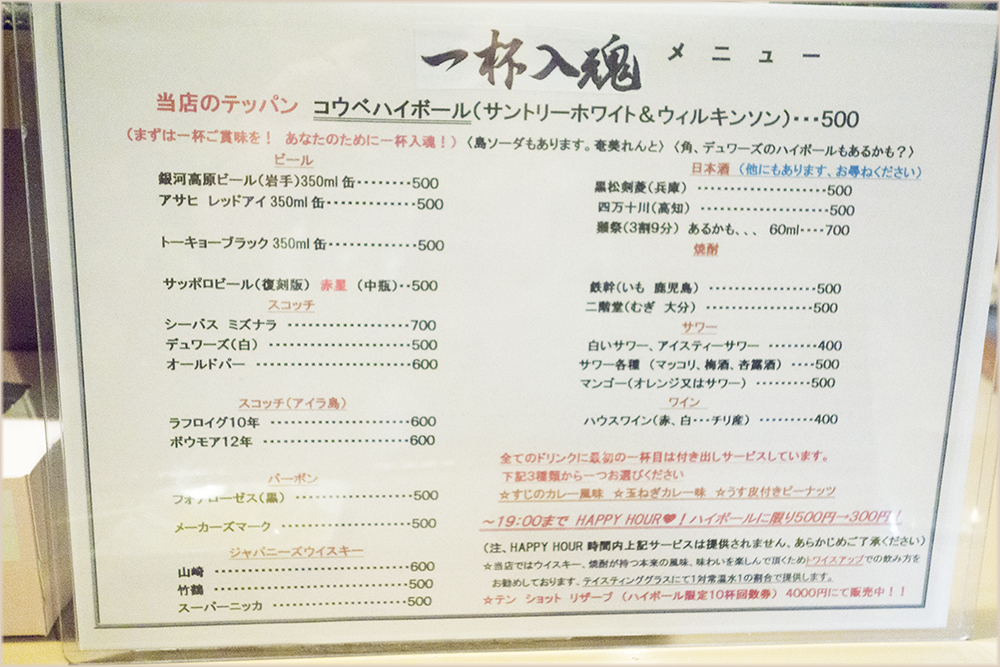 一杯入魂 メニュー
当店のテッパン コウベハイボール(サントリーホワイト&ウィルキンソン)・・・500
(まずは一杯ご賞味を！ あなたのために一杯入魂！) 〈島ソーダもあります。奄美れんと〉 〈角、デュワーズのハイボールもあるかも？〉
ビール
銀河高原ビール(岩手)350ml缶・・・・・・・・500
アサヒ レッドアイ350ml缶・・・・・・・・・・・500
トーキョーブラック350ml缶・・・・・・・・・・・500
サッポロビール(復刻版) 赤星 (中瓶)・・500
スコッチ
シーバス ミズナラ ・・・・・・・・・・・・・・・700
デュワーズ(白) ・・・・・・・・・・・・・・・・・500
オールドパー ・・・・・・・・・・・・・・・・・・・600
スコッチ(アイラ島)
ラフロイグ10年 ・・・・・・・・・・・・・・・・・600
ボウモア12年 ・・・・・・・・・・・・・・・・・・600
バーボン
フォアローゼス(黒) ・・・・・・・・・・・・・・・500
メーカーズマーク ・・・・・・・・・・・・・・・・・500
ジャパニーズウイスキー
山崎 ・・・・・・・・・・・・・・・・・・・・・・・600
竹鶴 ・・・・・・・・・・・・・・・・・・・・・・・500
スーパーニッカ ・・・・・・・・・・・・・・・・・500
日本酒 (他にもあります、お尋ねください)
黒松剣菱(兵庫) ・・・・・・・・・・・・・・・・・500
四万十川(高知) ・・・・・・・・・・・・・・・・・500
獺祭(3割9分) あるかも、、、 60ml・・・・700
焼酎
鉄幹(いも 鹿児島) ・・・・・・・・・・・・・・500
二階堂(むぎ 大分) ・・・・・・・・・・・・・・500
サワー
白いサワー、アイスティーサワー ・・・・・・・・・400
サワー各種 (マッコリ、梅酒、杏露酒) ・・・・500
マンゴー(オレンジ又はサワー) ・・・・・・・・・500
ワイン
ハウスワイン(赤、白・・・チリ産) ・・・・・・・・・400
全てのドリンクに最初の一杯目は付き出しサービスしています。
下記3種類から一つお選びください
☆すじのカレー風味 ☆玉ねぎカレー味 ☆うす皮付きピーナッツ
～19:00まで HAPPY HOUR♥！ハイボールに限り500円→300円！
(注、HAPPY HOUR 時間内上記サービスは提供されません、あらかじめご了承ください)
☆当店ではウイスキー、焼酎が持つ本来の風味、味わいを楽しんで頂くためトワイスアップでの飲み方を
お勧めしております、テイスティンググラスにて1対常温水1の割合で提供します。
☆テン ショット リザーブ (ハイボール限定10杯回数券) 4000円にて販売中！！